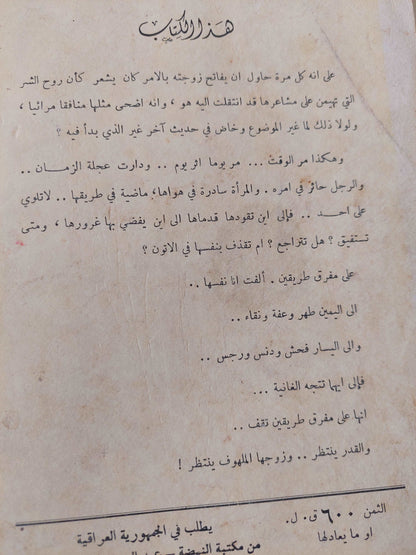 هذا الكتاب
على انه كل مرة حاول ان يفاتح زوجته بالامر كان يشعر كأن روح الشر
التي تهيمن على مشاعرها قد انتقلت اليه هو ، وانه اضحى مثلها منافقا مرائيا ،
ولولا ذلك لما غير الموضوع وخاض في حديث آخر غير الذي بدأ فيه ؟
وهكذا مر الوقت ... مر يوما اثر يوم .. ودارت عجلة الزمان ..
والرجل حائر في امره . والمرأة سادرة في هواها، ماضية في طريقها .. لا تلوي
على احد .. فإلى اين تقودها قدماها الى اين يفضي بها غرورها ، ومتى
تستفيق ؟ هل تتراجع ؟ ام تقذف بنفسها في الاتون ؟
على مفرق طريقين . ألفت انا نفسها ..
الى اليمين طهر وعفة ونقاء ..
والى اليسار فحش ودنس ورجس ..
فإلى ايهما تتجه الغانية ...
انها على مفرق طريقين تقف ..
والقدر ينتظر .. وزوجها الملهوف ينتظر !
الثمن ٦٠٠ ق. ل.
او ما يعادلها
يطلب في الجمهورية العراقية
من مكتبة النهضة —